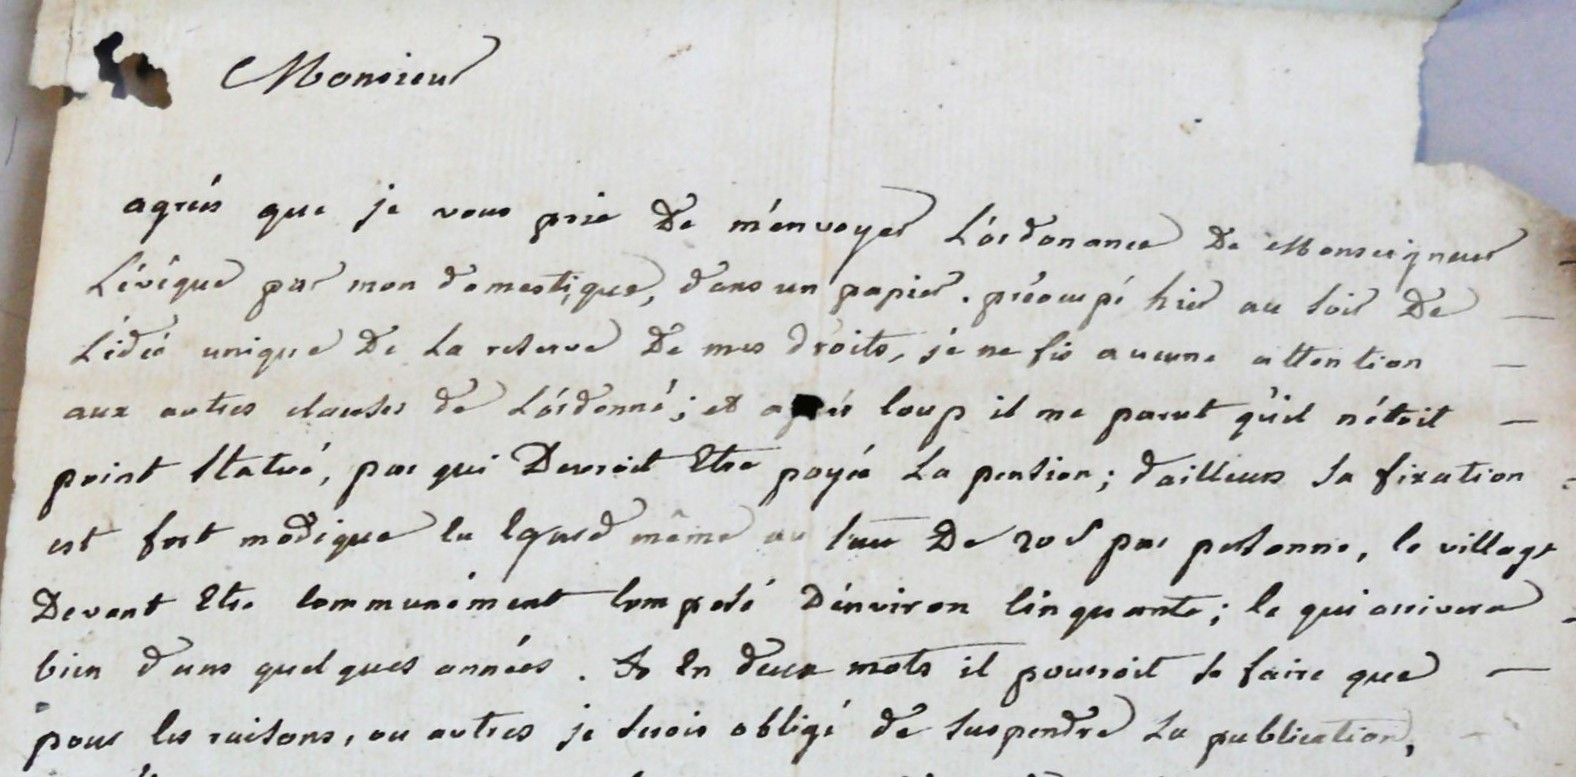 Monsieur
agrées que je vous prie De m'envoyer L'ordonance De Monseigneur
L'évêque par mon domestique, dans un papier. préocupé hier au soir De
L'idée unique De La reserve De mes droits, je ne fis aucune attention
aux autres clauses de L'ordonné; et après coup il me parut qu'il n'étoit
point statué, par qui Devroit Etre payée La pension; d'ailleurs sa fixation
est fort modique eu Egard même au taux De 20s par personne, le village
Devant Etre communément composé D'environ cinquante; ce qui arrivera
bien dans quelques années. En deux mots il pourroit se faire que
pour les raisons, ou autres je serois obligé de suspendre La publication,